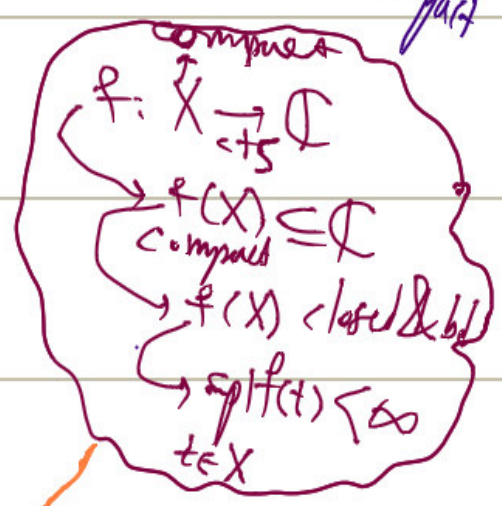 compact
f: X → ℂ
cts
f(X) ⊆ ℂ
compact
f(X) closed & bd
sup|f(t)| < ∞
t∈X